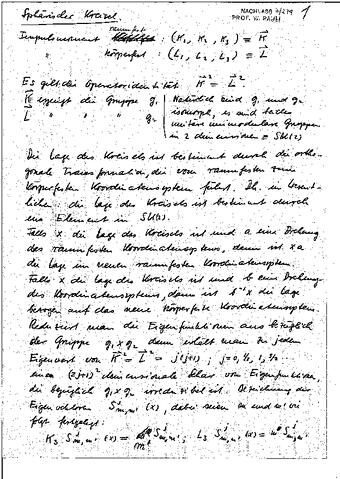 NACHLASS 7/279
PROF. W. PAULI
1
Sphärischer Kreisel.
Impulsmoment raumfeste : (K₁, K₂, K₃) = K⃗
" körperfest : (L₁, L₂, L₃) = L⃗
Es gilt die Operatoridentität K⃗² = L⃗².
K⃗ erzeugt die Gruppe g₁
L⃗ " " " g₂
Natürlich sind g₁ und g₂
isomorph, es sind beides
unitäre unimodulare Gruppen
in 2 dimensionen ≡ SU(2)
Die Lage des Kreisels ist bestimmt durch die ortho-
gonale Transformation, die vom raumfesten zum
körperfesten Koordinatensystem führt. D.h. im Wesent-
lichen: die Lage des Kreisels ist bestimmt durch
ein Element in SU(2).
Falls x die Lage des Kreisels ist und a eine Drehung
des raumfesten Koordinatensystems, dann ist xa
die Lage im neuen raumfesten Koordinatensystem.
Falls x die Lage des Kreisels ist und b eine Drehung
des Koordinatensystems, dann ist b⁻¹x die Lage
bezogen auf das neue körperfeste Koordinatensystem.
Reduziert man die Eigenfunktionen aus bezüglich
der Gruppe g₁ × g₂ dann erhält man zu jedem
Eigenwert von K⃗² = L⃗² = j(j+1), j = 0, ½, 1, 3/2 ..
einen (2j+1)² dimensionale Schar von Eigenfunktionen,
die bezüglich g₁ × g₂ irreduzibel ist. Bezeichnung der
Eigenvektoren Sʲₘ,ₘ' (x), dabei seien m und m' wie
folgt festgelegt:
K₃ Sʲₘ,ₘ' (x) = m Sʲₘ,ₘ' ; L₃ Sʲₘ,ₘ' (x) = m' Sʲₘ,ₘ'